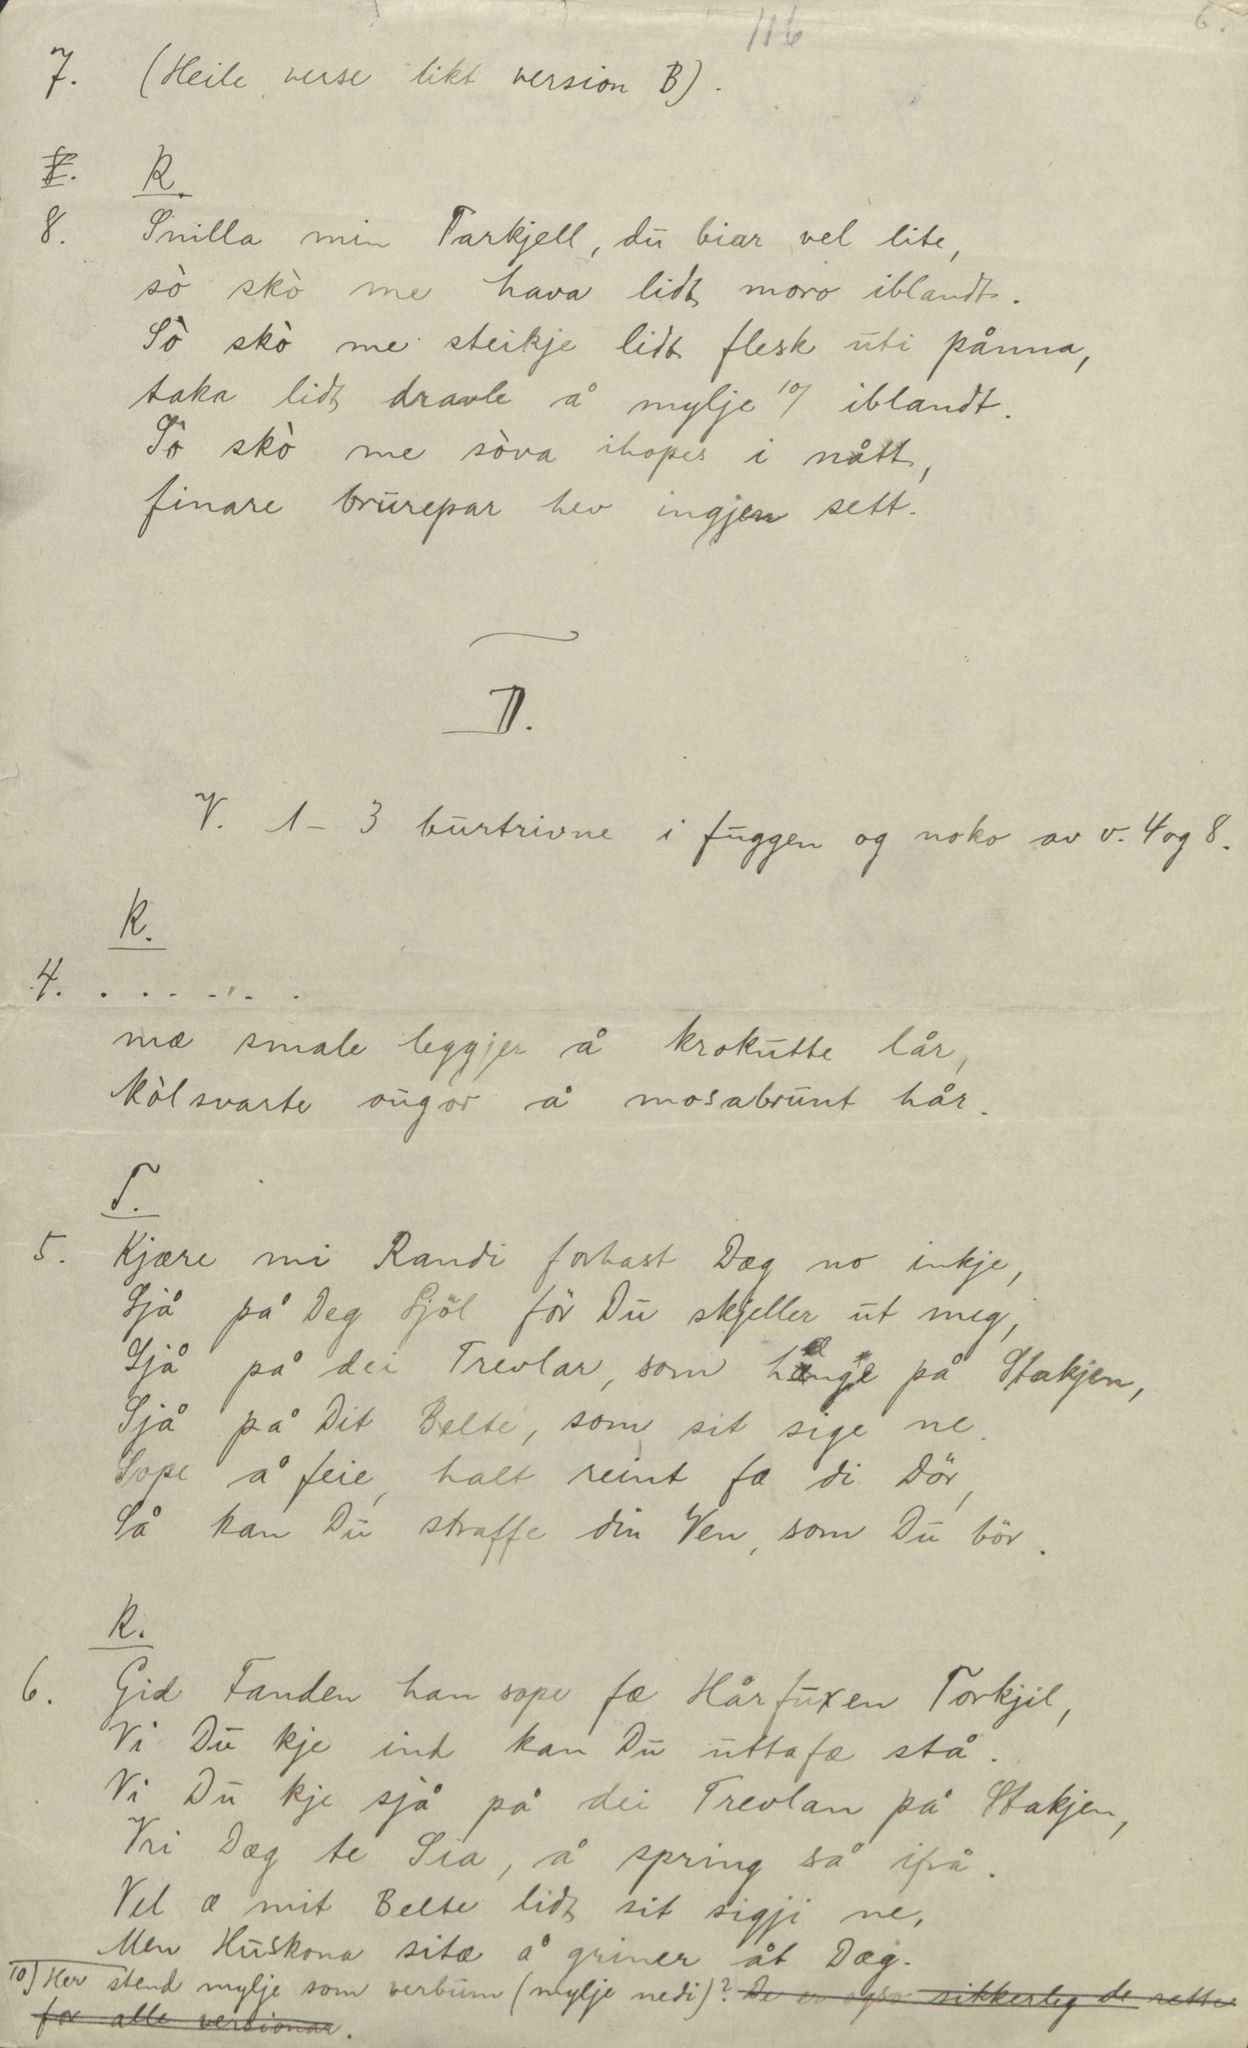 116
6.
7. (Heile verse likt version B).
R.
8. Snilla min Tarkjell, du biar vel lite,
sò skò me hava lidt moro iblandt.
Sò skò me steikje lidt flesk uti pånna,
taka lidt dravle å mylje 10) iblandt.
Sò skò me sòva ihopes i nått,
finare brurepar hev ingjen sett.
D.
V. 1-3 burtrivne i fuggen og noko av v. 4 og 8.
R.
4. . . . . . . .
mæ smale leggjer å krokutte lår,
kòlsvarte ougòr å mosabrunt hår.
T.
5. Kjære mi Randi forhast Dæg no inkje,
Sjå på Deg Sjöl för Du skjeller ut meg,
Sjå på dei Trevlar, som hænge på Stakjen,
Sjå på Dit Belte, som sit sige ne.
Sope å feie, halt reint fæ di Dör,
Så kan Du straffe din Ven, som Du bör.
R.
6. Gid Fanden han sope fæ Hårfuxen Torkjil,
Vi Du kje ind kan Du uttafæ stå.
Vi Du kje sjå på dei Trevlan på Stakjen,
Vri Dæg te Sia, å spring så ifrå.
Vel æ mit Belte lidt sit sigji ne,
Men Huskona sitæ å griner åt Dæg.
10) Her stend mylje som verbum (mylje nedi)? De er ogso sikkerleg de rette
for alle versionar.